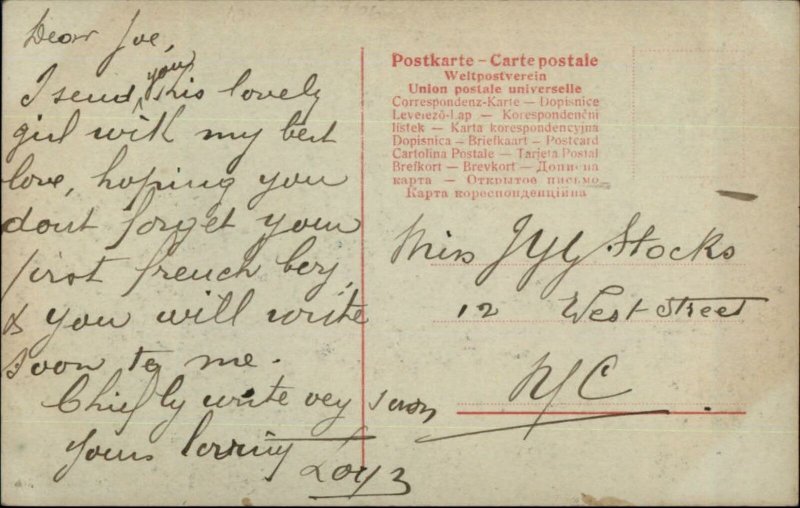 Dear Joe,
I send you this lovely
girl with my best
love, hoping you
dont forget your
first french boy,
& you will write
soon to me.
Chiefly write vey soon
yours loving
Postkarte – Carte postale
Weltpostverein
Union postale universelle
Correspondenz-Karte — Dopisnice
Levelező-Lap — Korespondenční
lístek — Karta korespondencyjna
Dopisnica — Briefkaart — Postcard
Cartolina Postale — Tarjeta Postal
Brefkort — Brevkort — Дописна
карта — Открытое письмо
Карта кореспонденційна
Miss Stocks
12 West Street
N/C